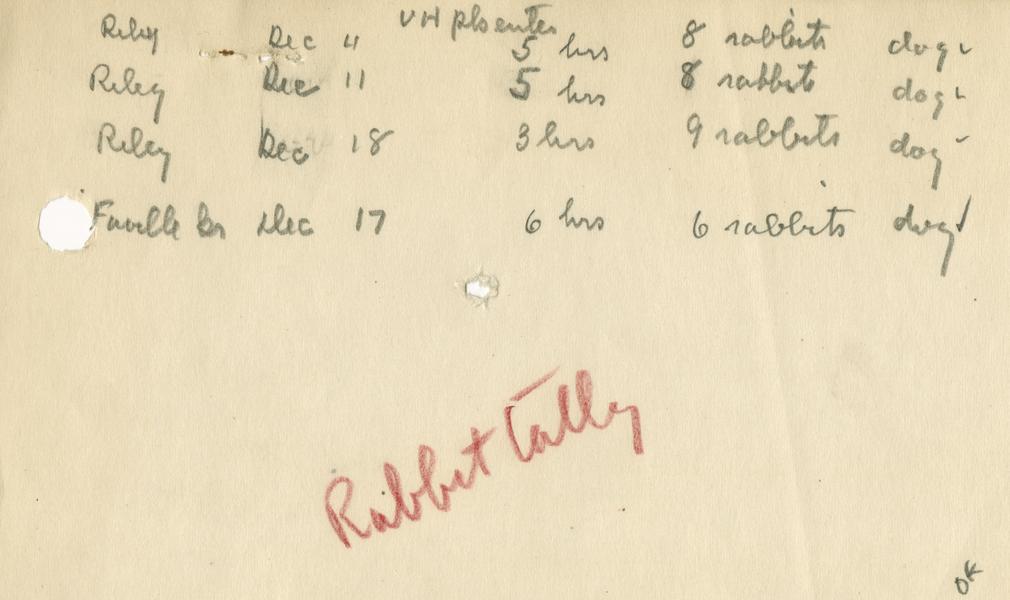 Riley Dec 11 5 hrs 8 rabbits dog ✓
Riley Dec 11 5 hrs 8 rabbits dog ✓
Riley Dec 18 3 hrs 9 rabbits dog ✓
Faville Dec 17 6 hrs 6 rabbits dog ✓
Rabbit tally
OK